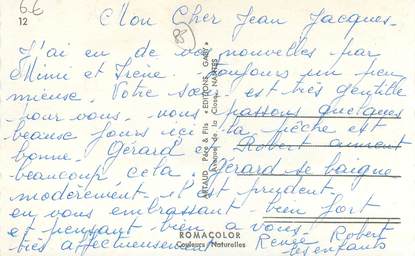 66
12
85
Mon Cher Jean Jacques.
J'ai eu de vos nouvelles par
Mimi et Irène. Toujours un peu
mieuse. Votre sœur est très gentille
pour vous, nous passons quelques
beause jours ici la pêche est
bonne. Gérard et Robert aiment
beaucoup ceta. Gérard se baigne
modérément il est prudent.
en vous embrassant bien fort
et pensant bien a vous.
très affectueusement Renée Robert
les enfants
ARTAUD Père & Fils "EDITIONS GABY"
Avenue de la Close, NANTES
ROMACOLOR
Couleurs Naturelles